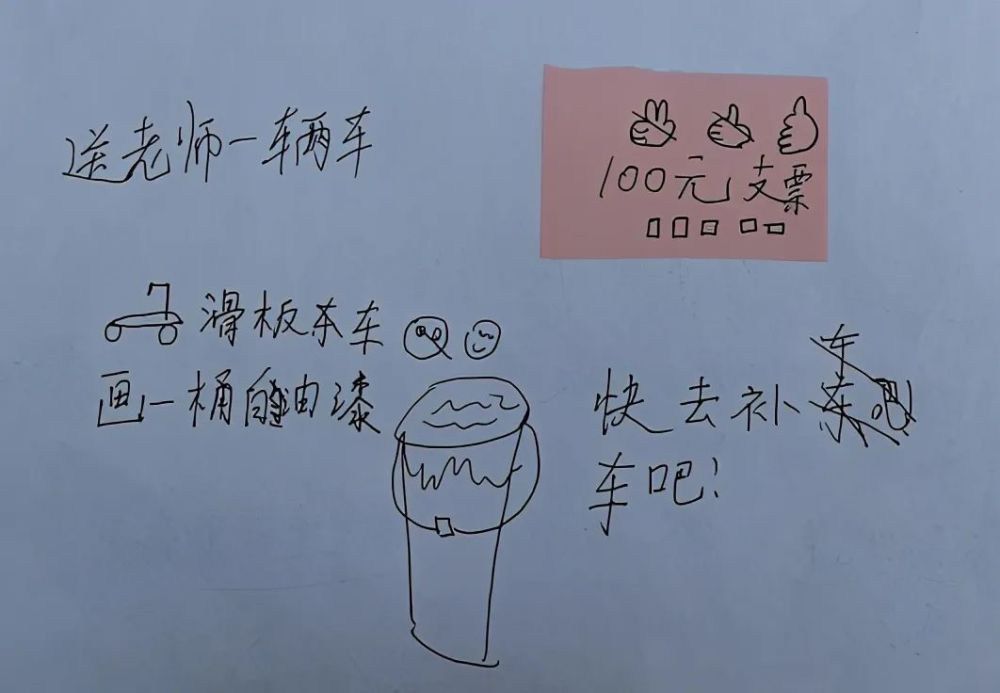 送老师一辆车
100元支票
滑板车
画一桶油漆
快去补
车吧！